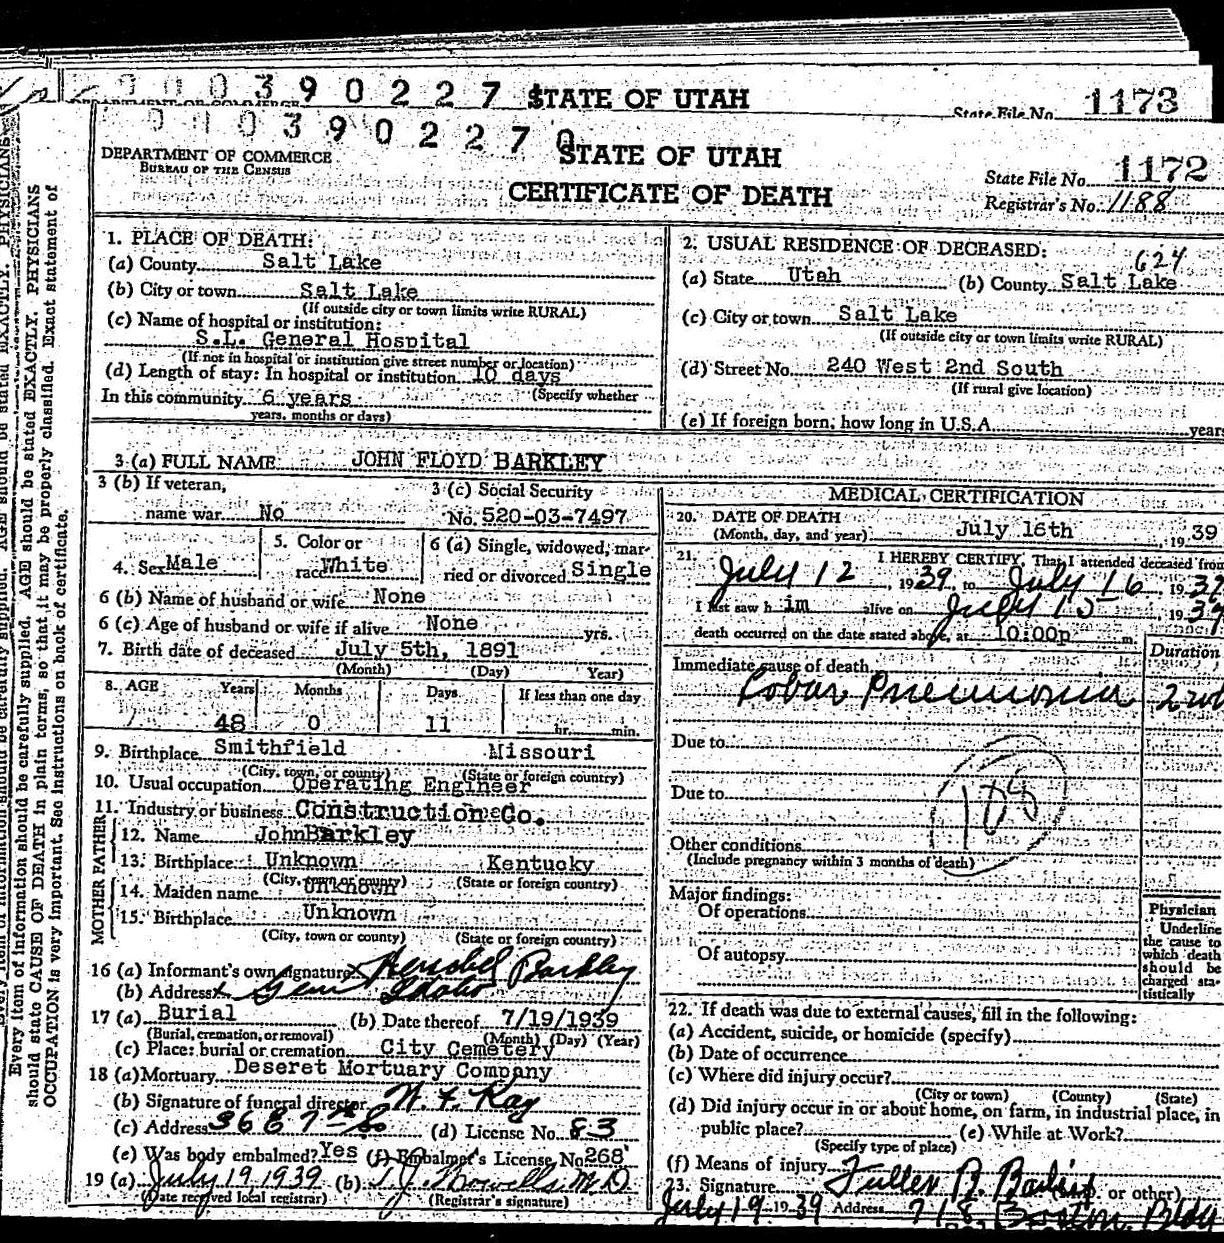 0 0 0 3 9 0 2 2 7 STATE OF UTAH
State File No. 1173
0 0 0 3 9 0 2 2 7 0
STATE OF UTAH
CERTIFICATE OF DEATH
DEPARTMENT OF COMMERCE
BUREAU OF THE CENSUS
State File No. 1172
Registrar's No. 1188
Every item of information should be carefully supplied. AGE should be stated EXACTLY. PHYSICIANS
should state CAUSE OF DEATH in plain terms, so that it may be properly classified. Exact statement of
OCCUPATION is very important. See instructions on back of certificate.
1. PLACE OF DEATH:
(a) County Salt Lake
(b) City or town Salt Lake
(If outside city or town limits write RURAL)
(c) Name of hospital or institution:
S.L. General Hospital
(If not in hospital or institution give street number or location)
(d) Length of stay: In hospital or institution 10 days
In this community 6 years (Specify whether
years, months or days)
2. USUAL RESIDENCE OF DECEASED:
624
(a) State Utah (b) County Salt Lake
(c) City or town Salt Lake
(If outside city or town limits write RURAL)
(d) Street No. 240 West 2nd South
(If rural give location)
(e) If foreign born, how long in U.S.A. years
3 (a) FULL NAME JOHN FLOYD BARKLEY
3 (b) If veteran, 3 (c) Social Security
name war No No. 520-03-7497
4. Sex Male 5. Color or race White 6 (a) Single, widowed, married or divorced Single
6 (b) Name of husband or wife None
6 (c) Age of husband or wife if alive None yrs.
7. Birth date of deceased July 5th, 1891
(Month) (Day) Year)
8. AGE Years Months Days If less than one day
48 0 11 hr. min.
9. Birthplace Smithfield Missouri
(City, town, or county) (State or foreign country)
10. Usual occupation Operating Engineer
11. Industry or business Construction Co.
FATHER
12. Name John Barkley
13. Birthplace Unknown Kentucky
(City, town or county) (State or foreign country)
MOTHER
14. Maiden name Unknown
15. Birthplace Unknown
(City, town or county) (State or foreign country)
16 (a) Informant's own signature x Hershel Barkley
(b) Address x Gem Idaho
17 (a) Burial (b) Date thereof 7/19/1939
(Burial, cremation, or removal) (Month) (Day) (Year)
(c) Place: burial or cremation City Cemetery
18 (a) Mortuary Deseret Mortuary Company
(b) Signature of funeral director
(c) Address (d) License No. 83
(e) Was body embalmed? Yes (f) Embalmer's License No. 268
19 (a) July 19 1939 (b) M.D.
(Date received local registrar) (Registrar's signature)
MEDICAL CERTIFICATION
20. DATE OF DEATH
(Month, day, and year) July 16th, 1939
21. I HEREBY CERTIFY, That I attended deceased from
July 12, 1939, to July 16, 1939
I last saw him alive on July 15 1939
death occurred on the date stated above, at 10:00p m.
Duration
Immediate cause of death
Lobar Pneumonia
Due to
Due to
108
Other conditions
(Include pregnancy within 3 months of death)
Major findings:
Of operations
Of autopsy
Physician
Underline
the cause to
which death
should be
charged sta-
tistically
22. If death was due to external causes, fill in the following:
(a) Accident, suicide, or homicide (specify)
(b) Date of occurrence
(c) Where did injury occur?
(City or town) (County) (State)
(d) Did injury occur in or about home, on farm, in industrial place, in
public place? (e) While at Work?
(Specify type of place)
(f) Means of injury
23. Signature Fuller or other)
July 19 1939 Address 718 Boston Bldg